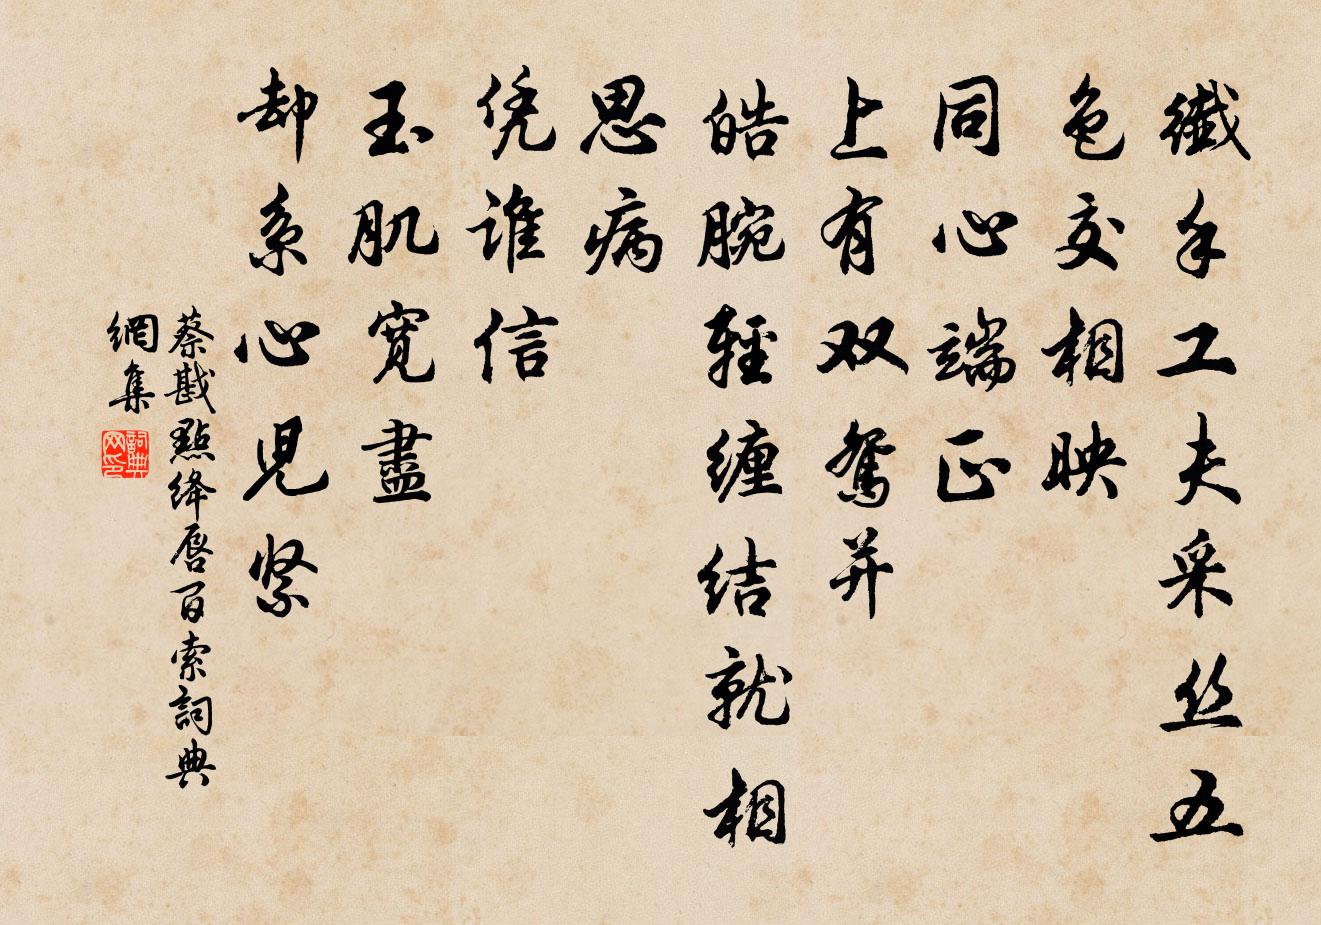 纖手工夫采丝五
色交相映
同心端正
上有双鸳并
皓腕輕缠结就相
思病
凭谁信
玉肌寬盡
却系心児紧
蔡戡點绛唇百索詞典
網集
詞典网印